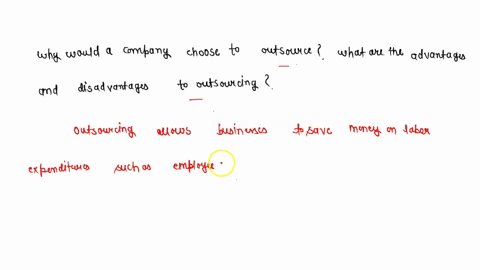 why would a company choose to outsource? what are the advantages
and disadvantages to outsourcing?
outsourcing allows businesses to save money on labor
expenditures such as employee